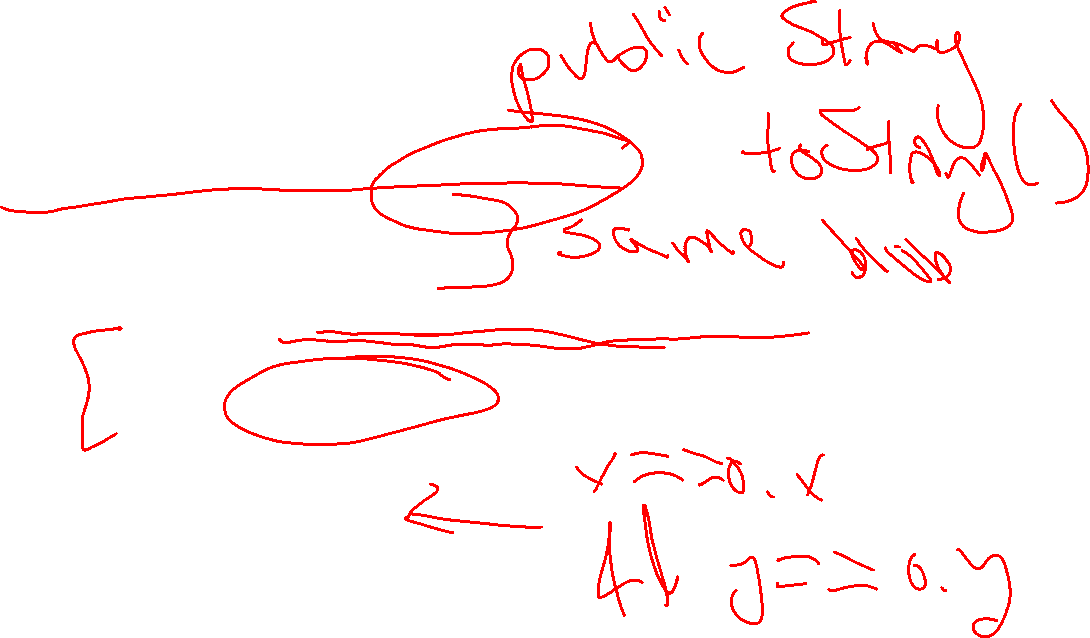 public String
toString()
same
x == o.x
&& y == o.y